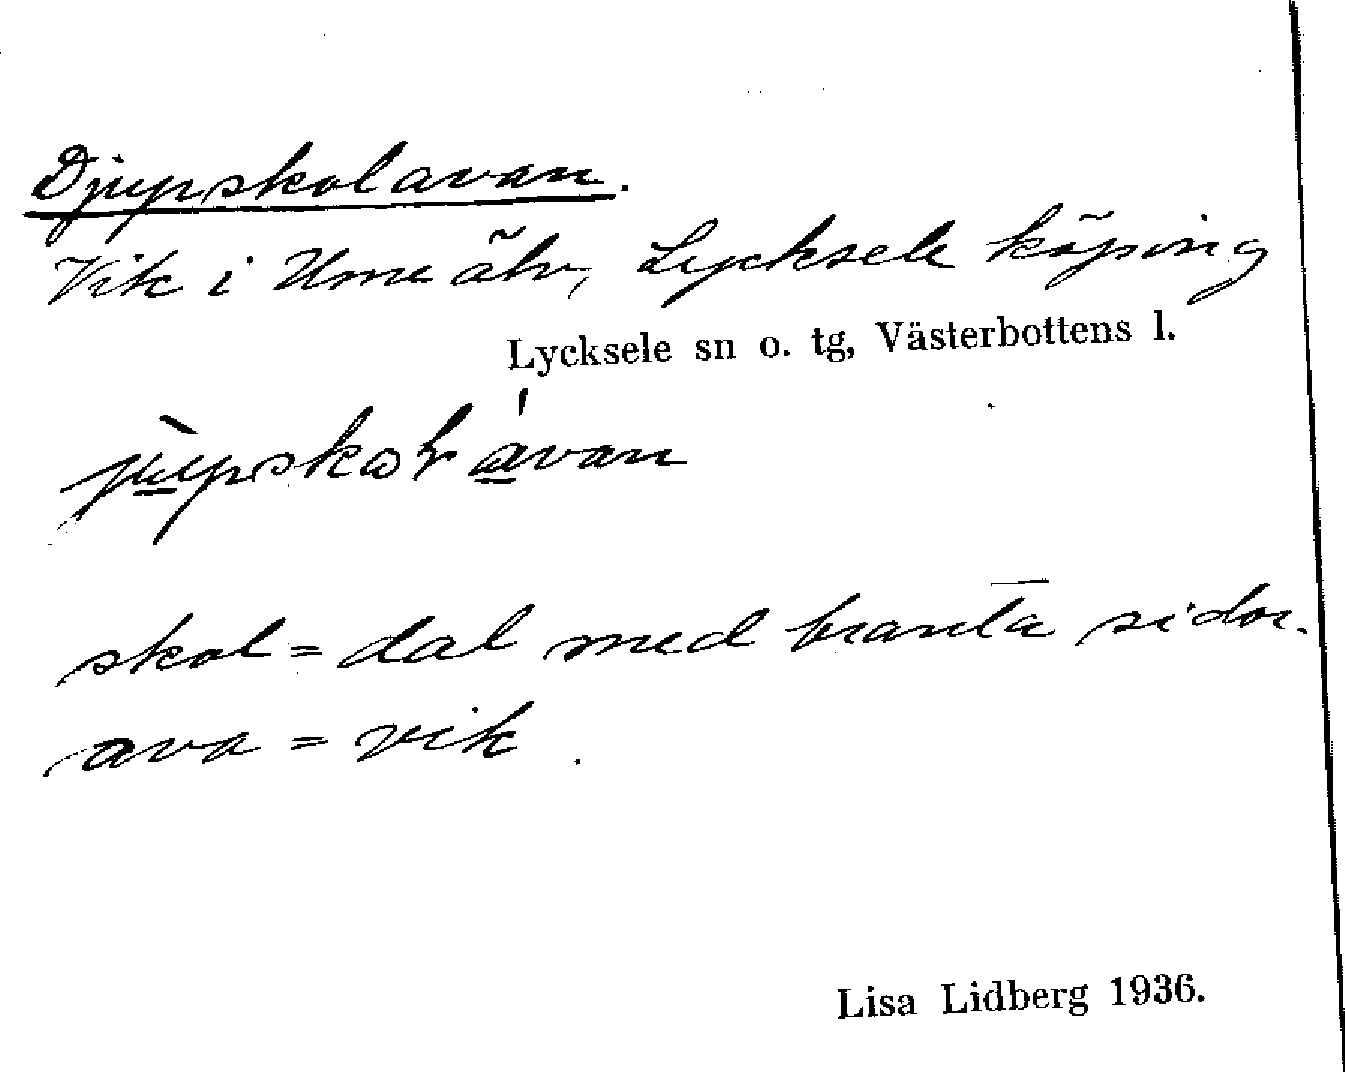 Djupskolavan.
Vik i Ume älv, Lycksele köping
Lycksele sn o. tg, Västerbottens l.
skol = dal med branta sidor.
ava = vik.
Lisa Lidberg 1936.